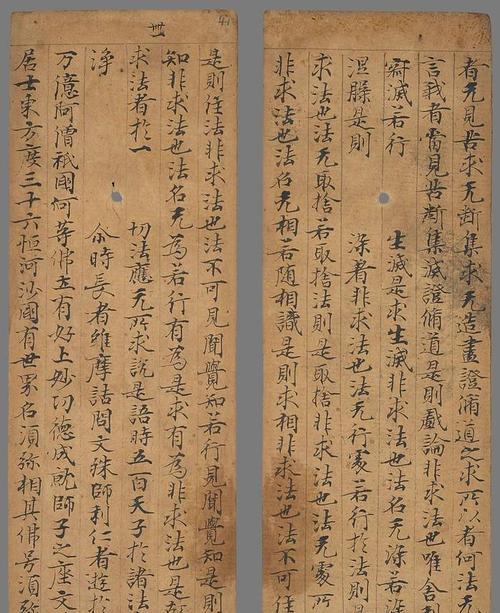 者无見苦求无断集求无造盡證脩道之求所以者何法无
言我者當見苦断集滅證脩道是則戲論非求法也唯舍
寂滅若行 生滅是求生滅非求法也法名无染若法
涅槃是則 染著非求法也法无行處若行於法則是
求法也法无取捨若取捨法則是取捨非求法也法无處所
非求法也法名无相若随相識是則求相非求法也法不可住
卌
41
是則住法非求法也法不可見聞覺知若行見聞覺知是則
知非求法也法名无為若行有為是求有為非求法也是故
求法者於一 切法應无所求說是語時五百天子於諸法
淨 尒時長者維摩詰問文殊師利仁者遊於
万億阿僧祇國何等佛土有好上妙功德成就師子之座文
居士東方度三十六恒河沙國有世界名須弥相其佛号須弥